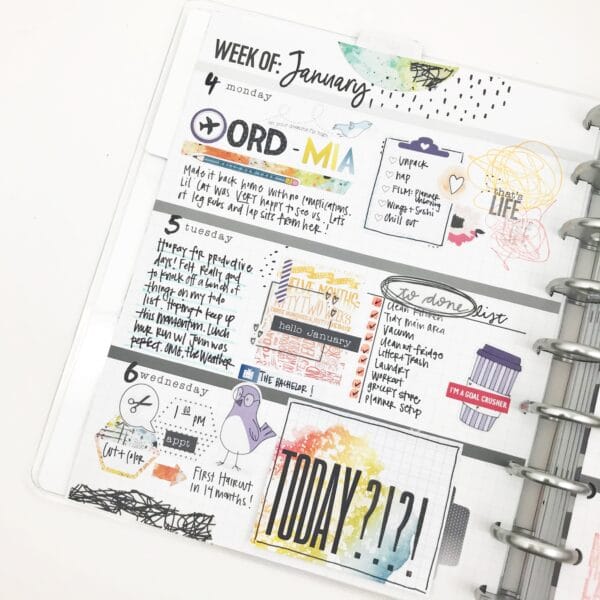 WEEK OF: January
4 monday
on your dreams fly high
ORD - MIA
Made it back home with no complications.
Lil' Cat was very happy to see us. Lots
of leg rubs and lap sits from her!
Unpack
nap
FILM: Planner
Unboxing
Wings + Sushi
chill out
that's
LIFE
5 tuesday
Hooray for productive
days! Felt really good
to knock off a bunch of
things on my todo
list. Hoping to keep up
this momentum. Lunch
hour run w/ Jenn was
perfect. OMG, the weather
TWELVE MONTHS
FIFTY TWO WEEKS
hello January
THE BACHELOR!
to done list
clean kitchen
Tidy main area
Vacuum
clean out fridge
Litter + Trash
Laundry
Workout
grocery store
planner setup
I'M A GOAL CRUSHER
6 wednesday
1:00 PM
appt
Cut + Color
First Haircut
in 14 months!
TODAY?!?!